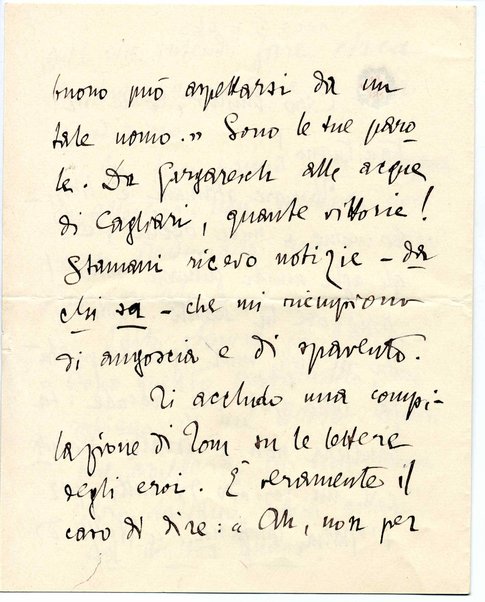 buono può aspettarsi da un
tale uomo.» Sono le tue paro-
le. Da Gargaresch alle acque
di Cagliari, quante vittorie!
Stamani ricevo notizie – da
chi sa – che mi riempiono
di angoscia e di spavento.
Ti accludo una compi-
lazione di Tom su le lettere
degli eroi. È veramente il
caso di dire: « Ah, non per